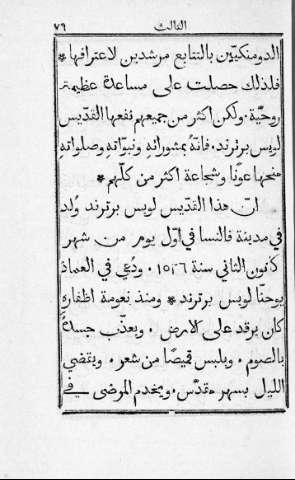 الثالث ٧٩
الدومنكيّون بالتتابع مرشدين لاعترافها *
فلذلك حصلت على مساعدة عظيمة
روحيّة. ولكن اكثر من جميعهم نفعها القدّيس
لويس برترند. فانّهُ بمشوراتهِ ونبوّاتهِ وصلواتهِ
منحها عونًا وشجاعة اكثر من كلّهم *
انّ هذا القدّيس لويس برترند وُلد
في مدينة فالنسا في اوّل يوم من شهر
كانون الثاني سنة ١٥٢٦. ودُعي في العماد
يوحنّا لويس برترند * ومنذ نعومة اظفاره
كان يرقد على الارض. ويعذّب جسدهُ
بالصوم. ويلبس قميصًا من شعر. ويقضي
الليل بسهر مقدّس. ويخدم المرضى في